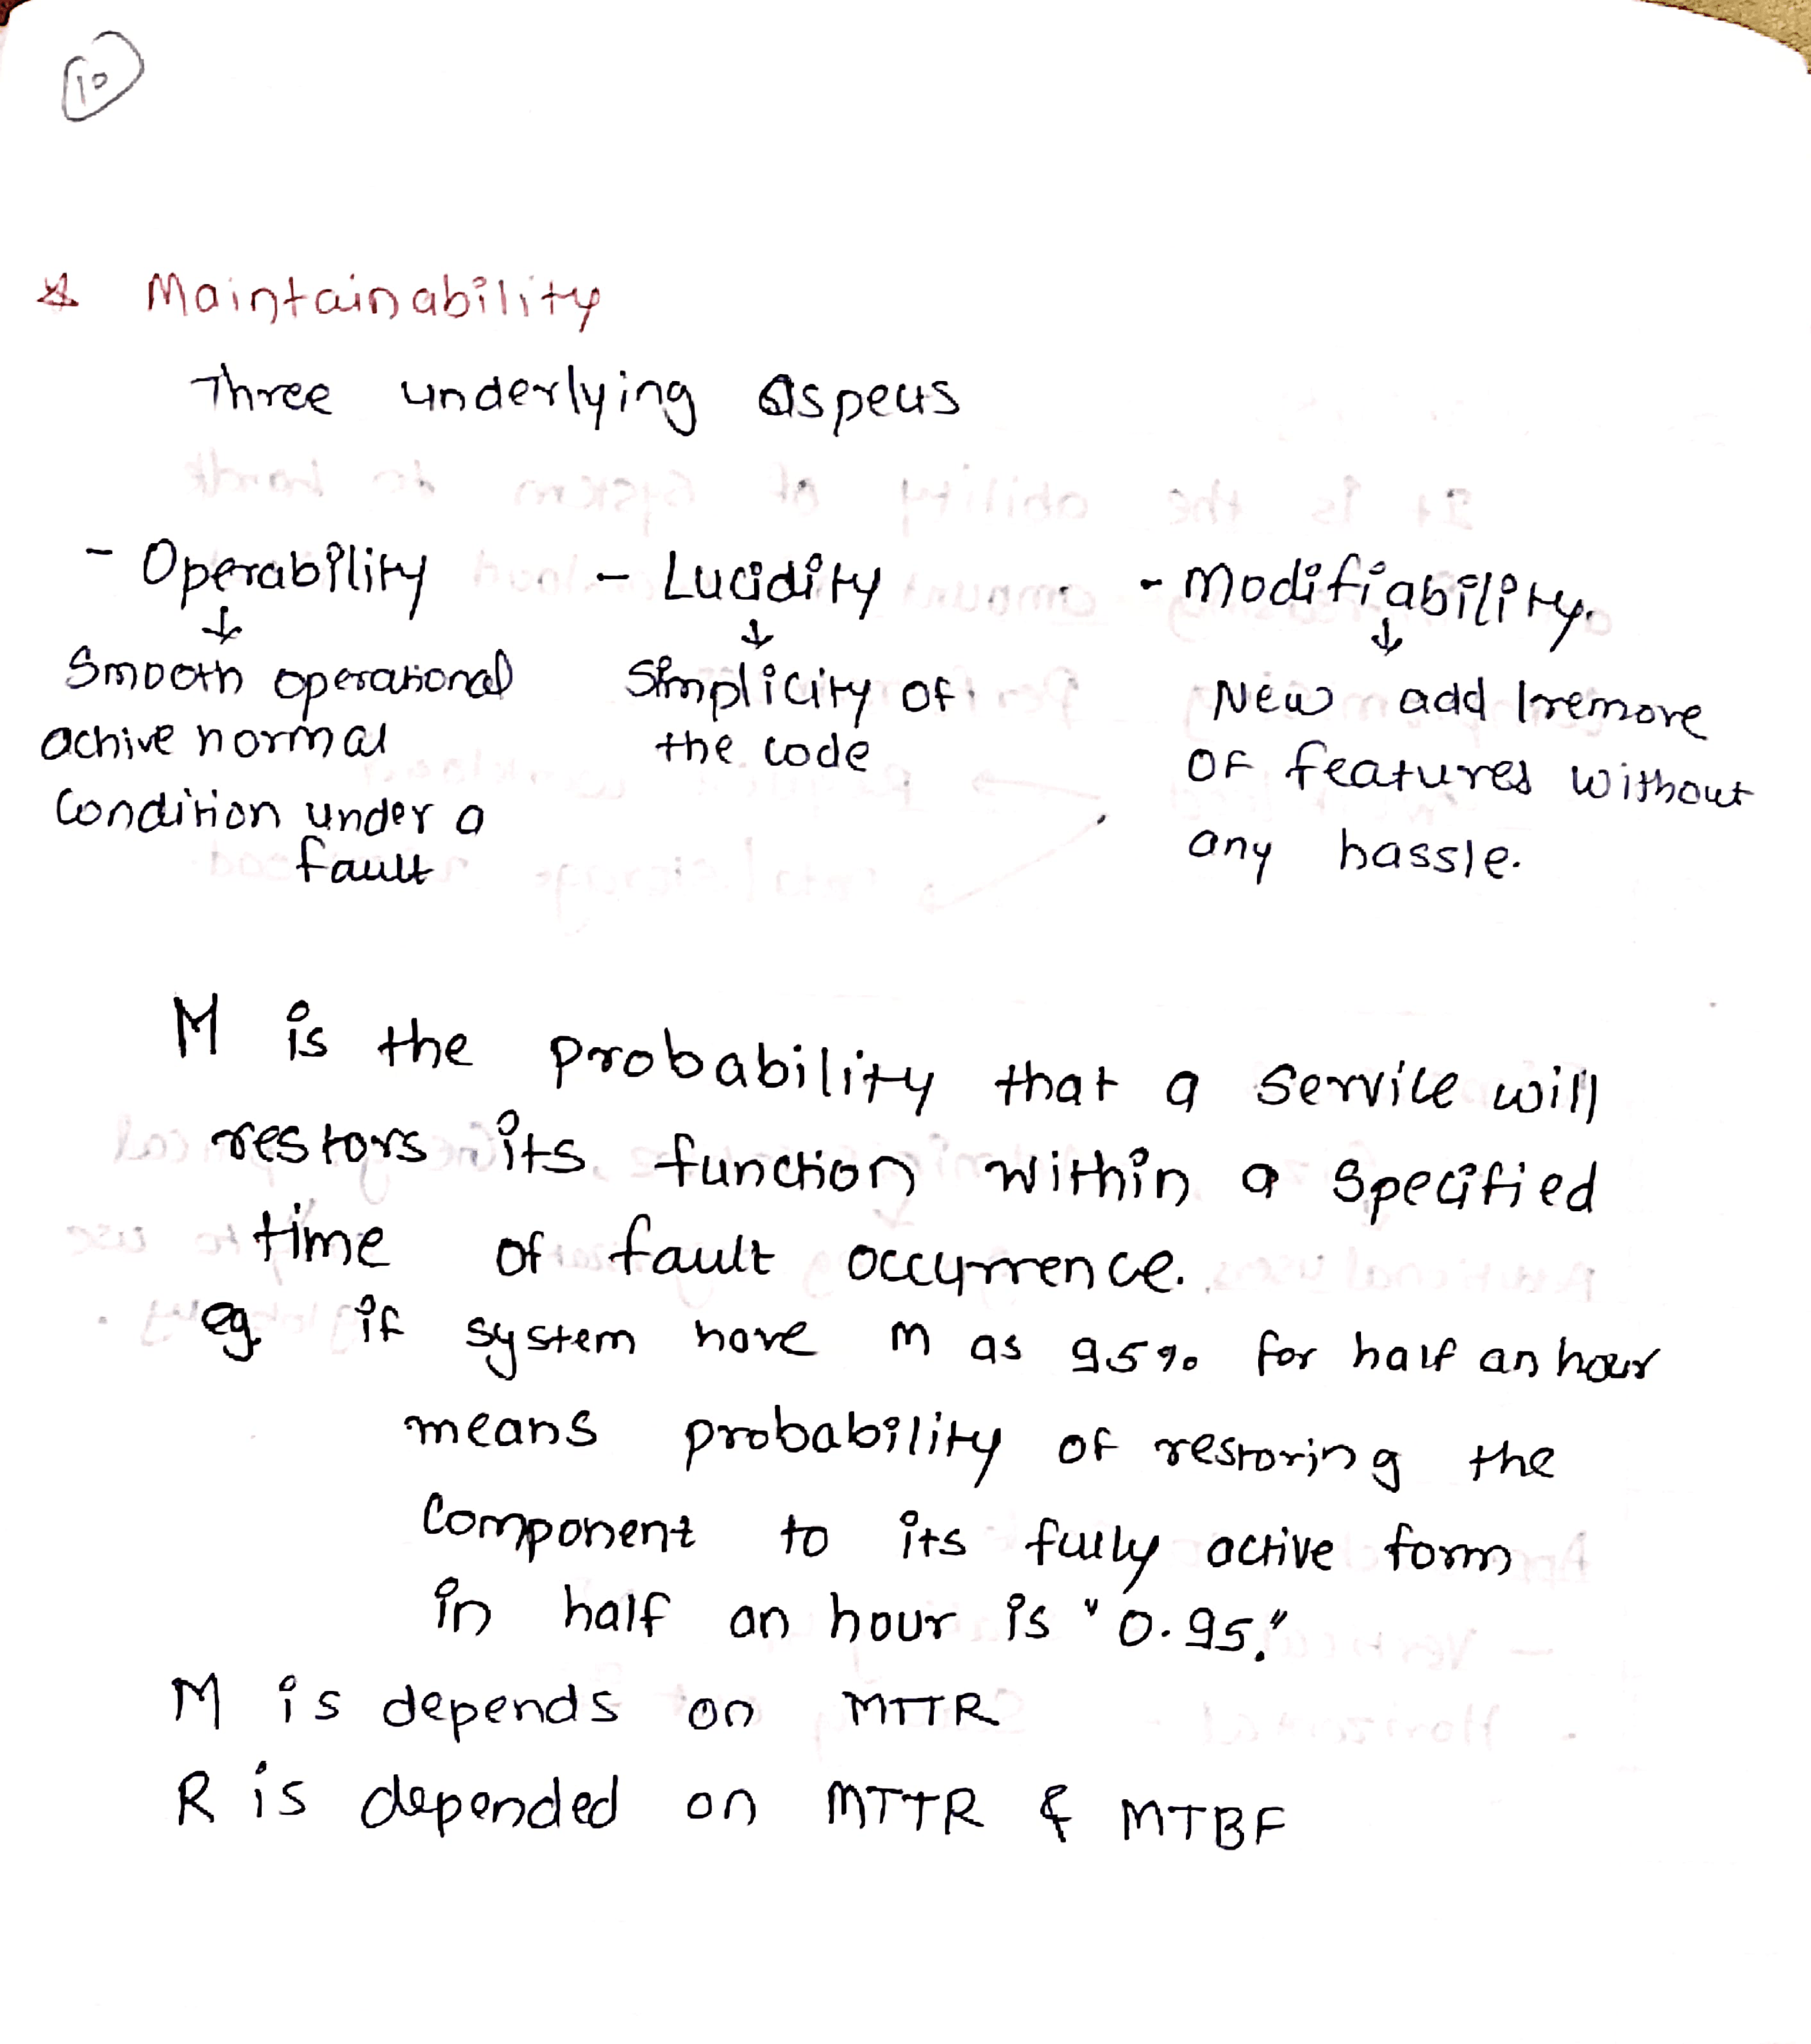 10
* Maintainability
Three underlying aspects
- Operability - Lucidity - Modifiability.
↓ ↓ ↓
Smooth operational Simplicity of New add/remove
achive normal the code of features without
condition under a any hassle.
fault
M is the probability that a service will
restors its function within a specified
time of fault occurrence.
eg. if system have m as 95% for half an hour
means probability of restoring the
component to its fully active form
in half an hour is "0.95."
M is depends on MTTR
R is depended on MTTR & MTBF